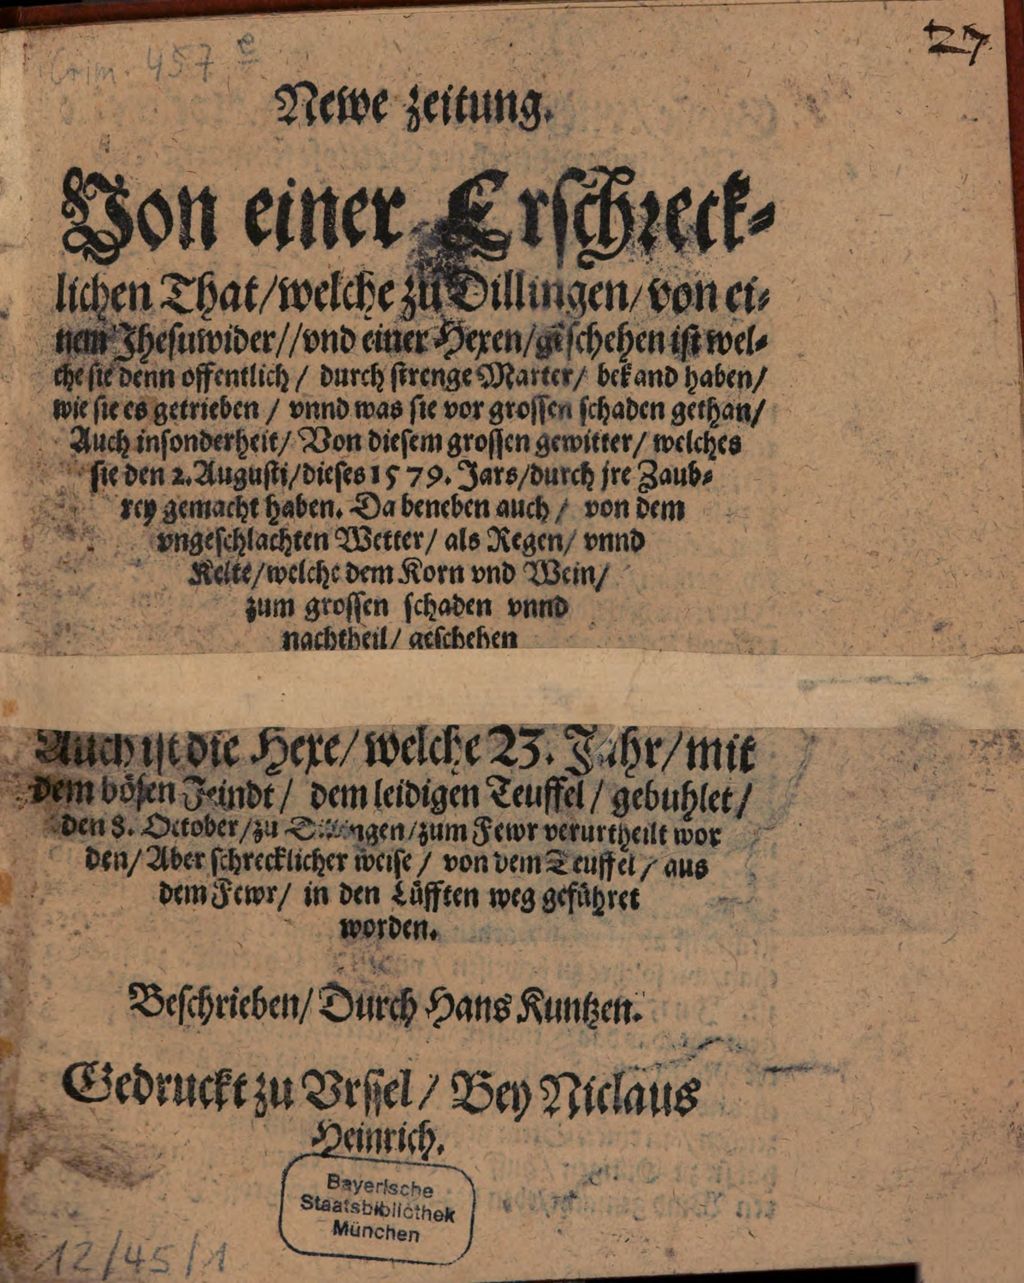 Crim. 457 e
27
Newe zeitung.
Von einer Erschreck-
lichen That/welche zu Dillingen/von ei-
nem Jhesuwider//vnd einer Hexen/geschehen ist wel-
che sie denn offentlich / durch strenge Marter/ bekand haben/
wie sie es getrieben / vnnd was sie vor grossen schaden gethan/
Auch insonderheit/ Von diesem grossen gewitter/ welches
sie den 2. Augusti/dieses 1579. Jars/durch jre Zaub-
rey gemacht haben. Da beneben auch / von dem
vngeschlachten Wetter/ als Regen/ vnnd
Kelte/welche dem Korn vnd Wein/
zum grossen schaden vnnd
nachtheil/ geschehen
Auch ist die Hexe/welche 23. Jahr/mit
dem bösen Feindt/ dem leidigen Teuffel/ gebuhlet/
den 8. October/zu Dillingen/zum Fewr verurtheilt wor
den/ Aber schrecklicher weise/ von dem Teuffel/ aus
dem Fewr/ in den Lüfften weg geführet
worden.
Beschrieben/ Durch Hans Kuntzen.
Gedruckt zu Vrssel/ Bey Niclaus
Heinrich.
Bayerische
Staatsbibliothek
München
12/45/1